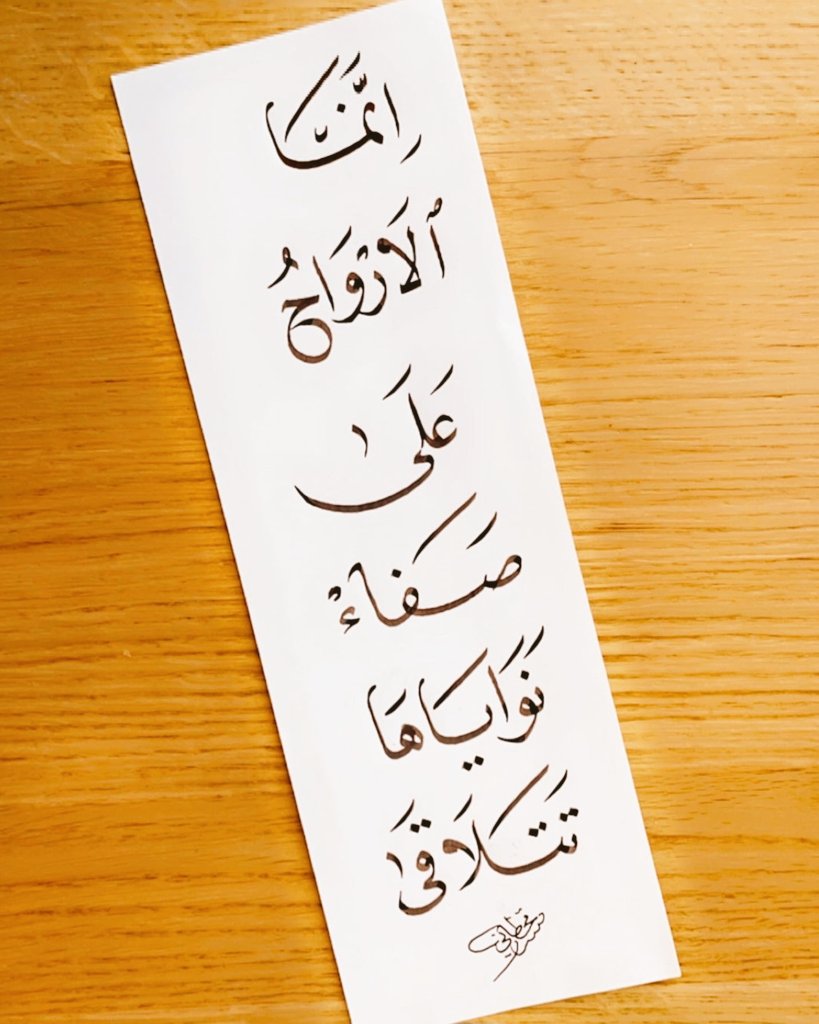 إِنَّمَا
ٱلَارْوَاحُ
عَلَى
صَفَاءْ
نَوَايَاهَا
تَتَلَاقَى